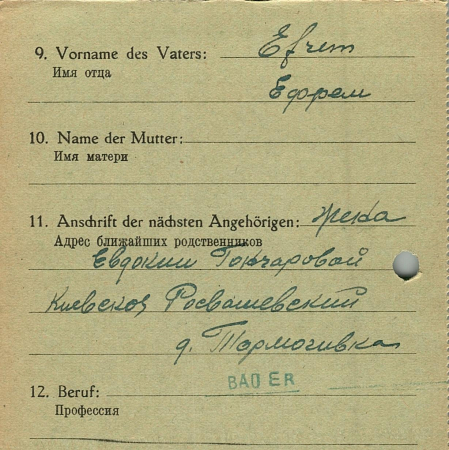 9. Vorname des Vaters: Efrem
Имя отца
Ефрем
10. Name der Mutter:
Имя матери
11. Anschrift der nächsten Angehörigen: жена
Адрес ближайших родственников
Евдокии Гончаровой
Киевская
д. Тормочивка
12. Beruf: BAUER
Профессия